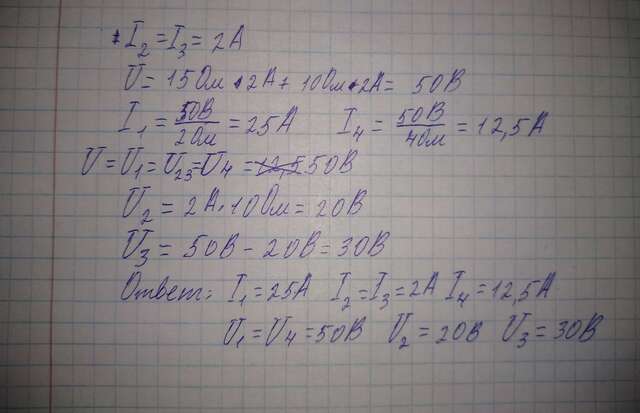 I₂ = I₃ = 2А
U = 15Ом · 2А + 10Ом · 2А = 50В
I₁ = 50В/2Ом = 25А I₄ = 50В/4Ом = 12,5А
U = U₁ = U₂₃ = U₄ = 50В
U₂ = 2А · 10Ом = 20В
U₃ = 50В - 20В = 30В
Ответ: I₁ = 25А I₂ = I₃ = 2А I₄ = 12,5А
U₁ = U₄ = 50В U₂ = 20В U₃ = 30В